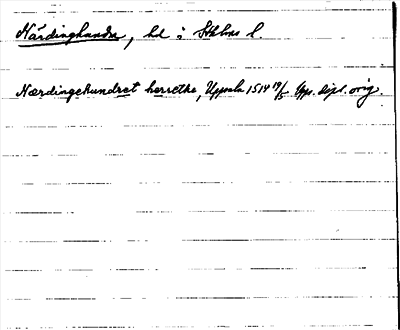 Närdinghundra, hd i Sthlms l
Nærdingehundret herrethe, Uppsala 1514 19/5 Upps. dipl. orig.